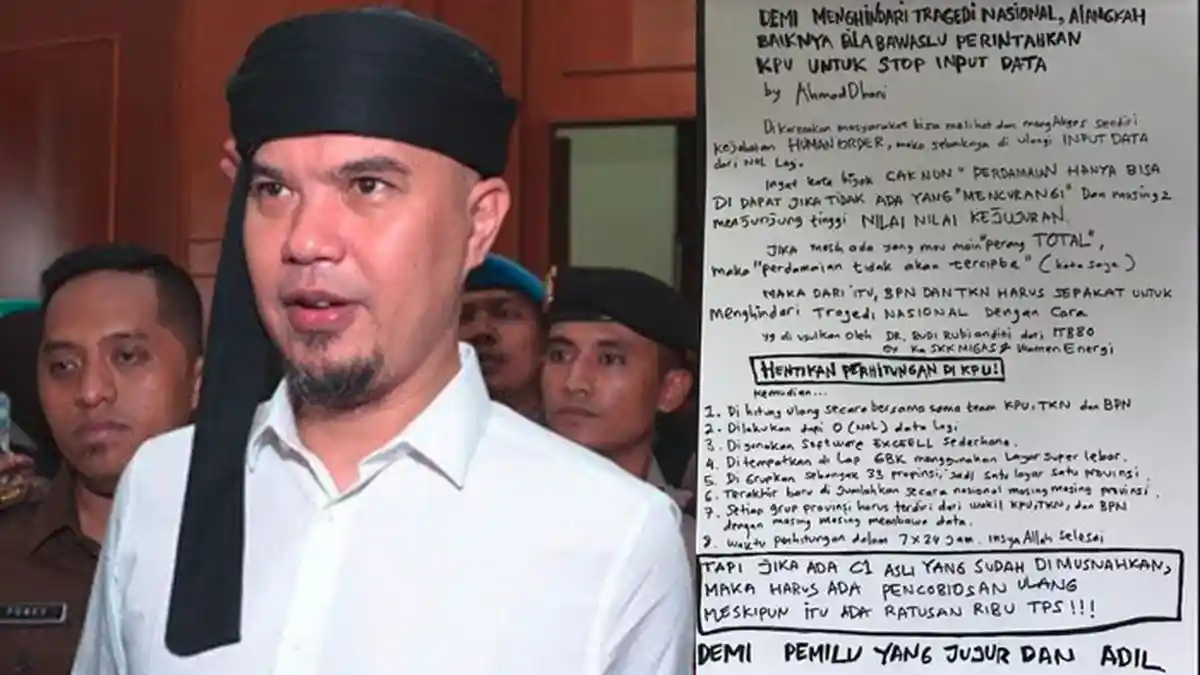 DEMI MENGHINDARI TRAGEDI NASIONAL, ALANGKAH
BAIKNYA BILA BAWASLU PERINTAHKAN
KPU UNTUK STOP INPUT DATA
by AhmadDhani
Dikarenakan masyarakat bisa melihat dan mengakses sendiri
kejahatan HUMAN ORDER, maka sebaiknya di ulangi INPUT DATA
dari NOL lagi.
Ingat kata bijak CAK NUN " PERDAMAIAN HANYA BISA
DI DAPAT JIKA TIDAK ADA YANG "MENCURANGI" Dan masing2
menjunjung tinggi NILAI NILAI KEJUJURAN.
JIKA masih ada yang mau main "perang TOTAL",
maka "perdamaian tidak akan tercipta" (kata saya)
MAKA DARI ITU, BPN DAN TKN HARUS SEPAKAT UNTUK
Menghindari TRAGEDI NASIONAL Dengan Cara
yg di usulkan oleh DR. RUDI Rubiandini dari ITB80
ex Ka SKK MIGAS & Wamen Energi
HENTIKAN PERHITUNGAN DI KPU!
Kemudian...
1. Di hitung ulang secara bersama sama team KPU, TKN dan BPN
2. Dilakukan dari 0 (NOL) data lagi
3. Digunakan Software EXCELL Sederhana.
4. Ditempatkan di Lap GBK menggunakan Layar Super lebar.
5. Di Grupkan sebanyak 33 propinsi, jadi satu layar satu provinsi.
6. Terakhir baru di jumlahkan secara nasional masing masing provinsi.
7. Setiap grup provinsi harus terdiri dari wakil KPU, TKN, dan BPN
dengan masing masing membawa data.
8. Waktu perhitungan dalam 7 x 24 jam. insyaAllah selesai
TAPI JIKA ADA C1 ASLI YANG SUDAH DIMUSNAHKAN,
MAKA HARUS ADA PENCOBLOSAN ULANG
MESKIPUN ITU ADA RATUSAN RIBU TPS!!!
DEMI PEMILU YANG JUJUR DAN ADIL